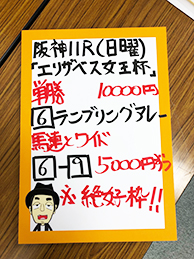 阪神11R(日曜)
「エリザベス女王杯」
単勝 10000円
6 ランブリングアレー
馬連とワイド
6-9 5000円ずつ
※絶好枠!!